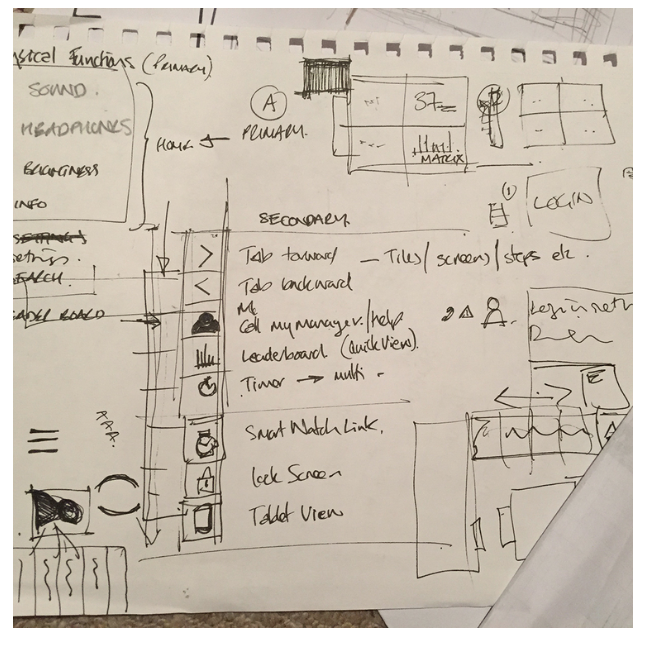 Physical Functions (Primary)
SOUND.
HEADPHONES
BRIGHTNESS
INFO
SETTINGS
Settings.
SEARCH.
LEADER BOARD
HOME
A
PRIMARY.
37
MATRIX
SECONDARY.
(1)
LOGIN
> Tab forward — Tiles/screens/steps etc.
< Tab backward
Call my manager./help
Leaderboard (quick view).
Timer → multi -
Smart Watch Link.
Lock Screen
Tablet View
E